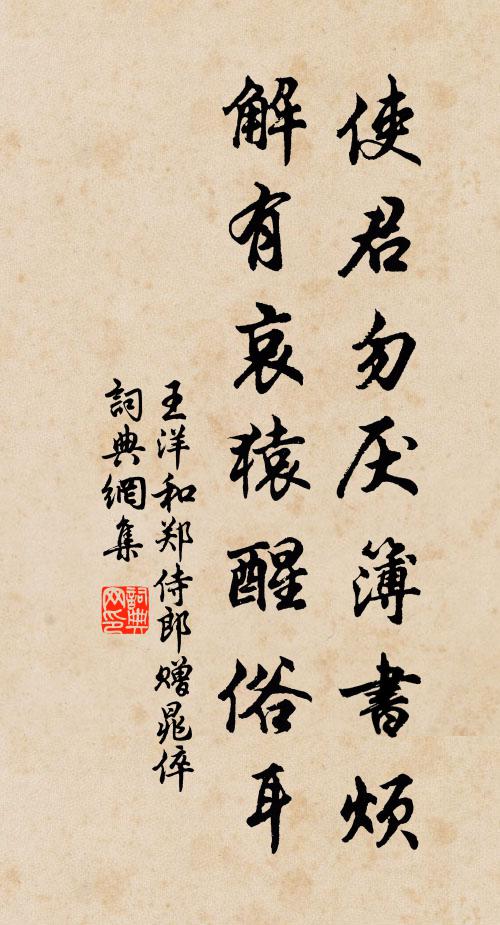 使君勿厌簿書煩
解有哀猿醒俗耳
王洋和郑侍郎赠晁倅
詞典網集
詞典网印